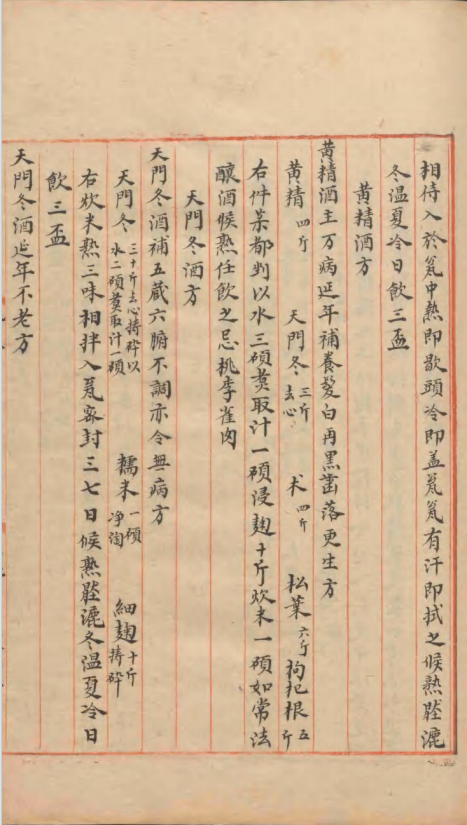 相待入於瓮中熱即歇頭冷即盖瓮瓮有汗即拭之候熟壓漉
冬温夏冷日飲三盃
黄精酒方
黄精酒主万病延年補養髮白再黒齒落更生方
黄精四斤 天門冬三斤去心 术四斤 松葉六斤 枸杞根五斤
右件藥都剉以水三碩煑取汁一碩浸麹十斤炊米一碩如常法
釀酒候熟任飲之忌桃李雀肉
天門冬酒方
天門冬酒補五蔵六腑不調亦令無病方
天門冬三十斤去心擣碎以水二碩煑取汁一碩 糯米一碩净淘 細麹十斤擣碎
右炊米熟三味相拌入瓮密封三七日候熟壓漉冬温夏冷日
飲三盃
天門冬酒延年不老方